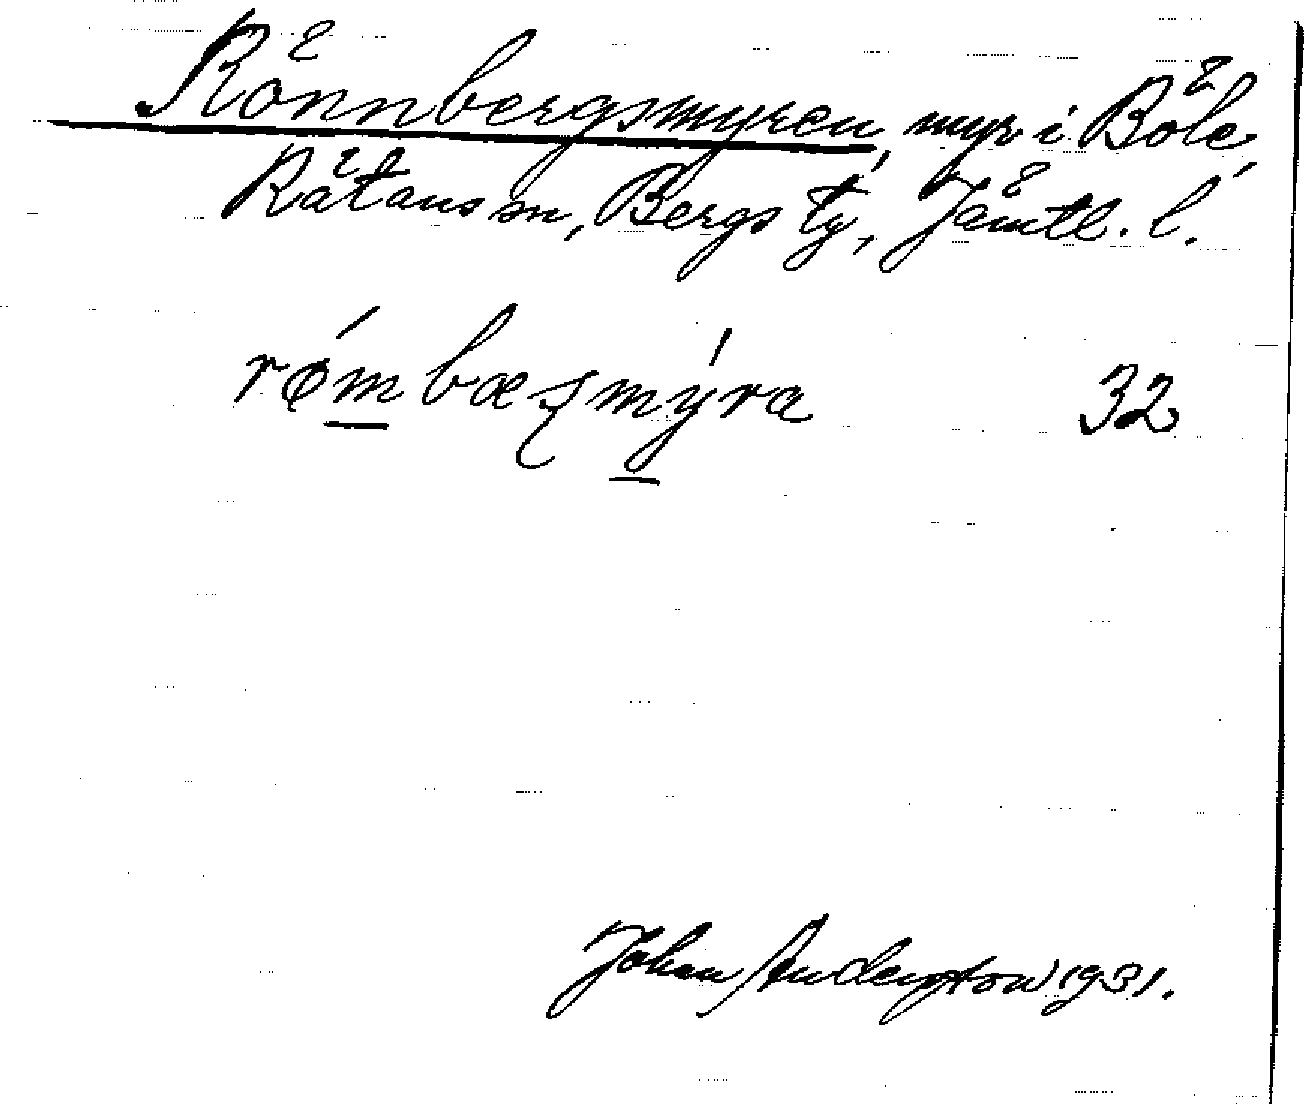 Rönnbergsmyren, myr i Böle,
Rätans sn, Bergs tg, Jämtl. l.
røm bæʂmyra 32
Johan Anderston 1931.